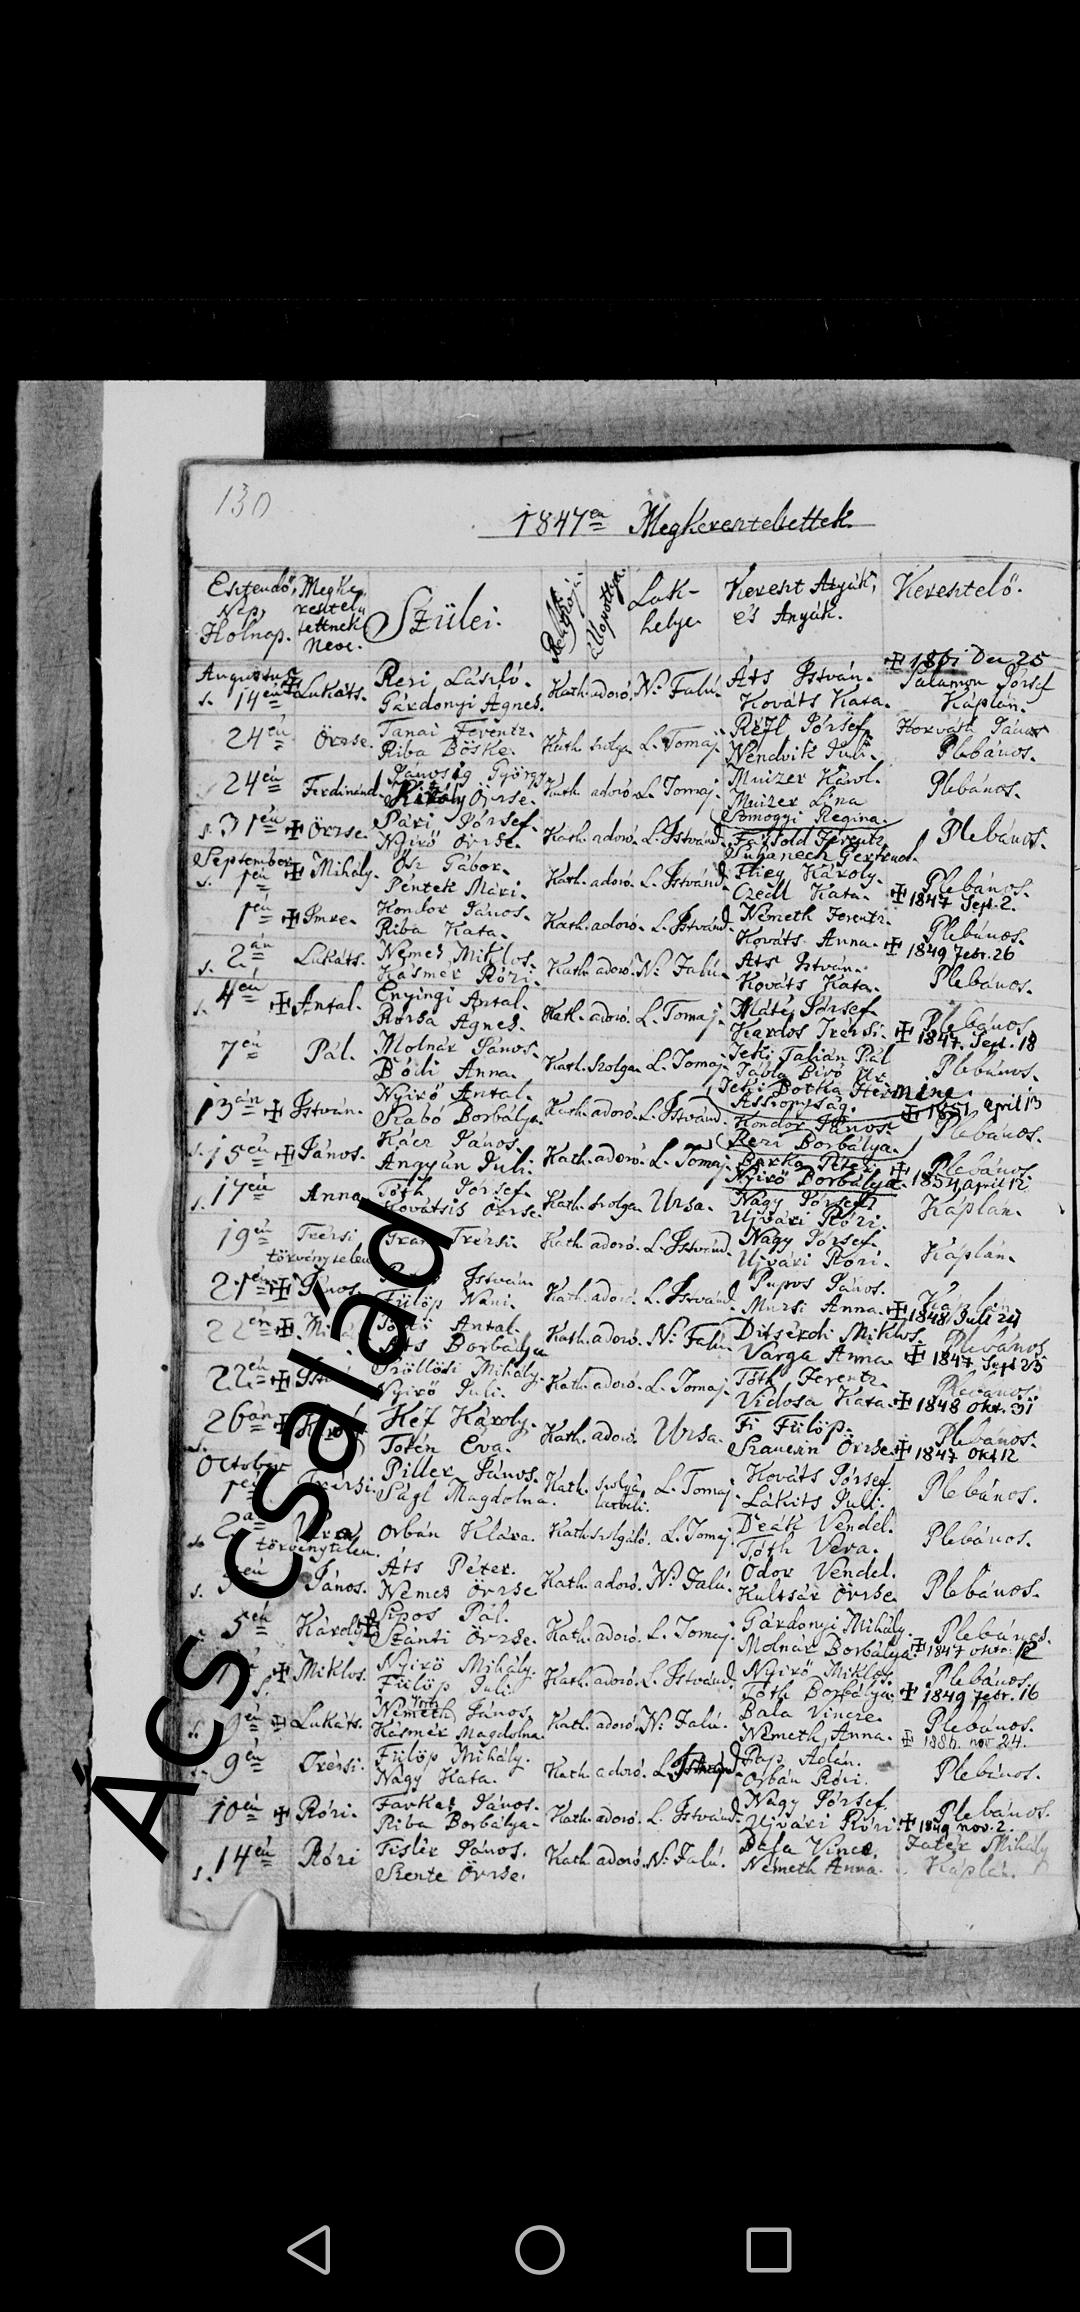 130
1847en Megkereszteltettek.
Esztendő, Nap, Holnap.
Megke
resztel
tettnek
Neve.
Szülei.
Lak-
helye.
Kereszt Atyák,
és Anyák.
Keresztelő.
Augustus
s. 14én Lukáts. Rezi László. Kath. adozó. N. Falu. Áts István. Salamon József
Gárdonyi Ágnes. Kováts Kata. Káplán.
24én Örzse. Tanai Ferentz. Kath. szolga L. Tomaj. József Horváth János
Riba Böske. Juli. Plebános.
24én Ferdinánd. György Kath. adozó. L. Tomaj. Muizer Károl. Plebános.
Király Örzse. Muizer Lina
Somogyi Regina.
s. 31én Örzse. Pári József. Kath. adozó. L. Istvánd. Ferentz Plebános.
Nyirő Örzse. Gertrud.
September
s. 1én Mihály. Ősz Gábor. Kath. adozó. L. Istvánd. Károly. Plebános.
Péntek Mári. Kata. 1847 Sept. 2.
1én Imre. Kondor János. Kath. adozó. L. Istvánd. Németh Ferentz. Plebános.
Riba Kata. Kováts Anna. 1849 Febr. 26
s. 2án Lukáts. Nemes Miklos. Kath. adozó. N. Falu. Ats István. Plebános.
Kázmér Rózi. Kováts Kata.
s. 4én Antal. Enyingi Antal. Kath. adozó. L. Tomaj. Máté József. Plebános
Rózsa Ágnes. Kardos Trézsi. 1847. Sept. 18
7én Pál. Molnár János. Kath. szolga L. Tomaj. Jeszi Talián Pál Plebános.
Bódi Anna. Tábla Biró Ur.
13án István. Nyirő Antal. Kath. adozó. L. Istvánd. Botka Hermine
Szabó Borbálya. Asszonyság. 1851 april 13
Kondor János Plebános.
s. 15én János. Kácz János. Kath. adozó. L. Tomaj. Rezi Borbálya.
Angyán Juli. Barka Péter. Plebános
Nyirő Borbálya. april 12
s. 17én Anna Tóth József. Kath. szolga Ursa. Nagy József Káplán.
Kovátsis Örzse. Ujvári Rózi.
19én Trézsi Trézsi. Kath. adozó. L. Istvánd. Nagy József. Káplán.
törvénytelen Ujvári Rózi.
21én János István Kath. adozó. L. Istvánd. Pupos János. Káplán.
Fülöp Náni. Murzi Anna. 1848 Juli 24
22én Antal. Kath. adozó. N. Falu. Ditsérdi Miklos. Plebános.
Áts Borbálya Varga Anna. 1847 Sept 25
22én Mihály. Kath. adozó. L. Tomaj. Tóth Ferentz. Plebános.
Nyirő Juli. Vidosa Kata. 1848 Okt. 31
26án Kéf Károly. Kath. adozó Ursa. Fi Fülöp. Plebános.
Éva. Örzse. 1847 Okt 12
s.
October
1én Trézsi. Piller János. Kath. szolga L. Tomaj. Kováts József. Plebános.
Ságl Magdolna. Lákits Juli.
s. 2án Orbán Klára. Kath. szolgáló. L. Tomaj. Deák Vendel. Plebános.
törvénytelen. Tóth Vera.
s. János. Áts Péter. Kath. adozó. N. Falu. Odor Vendel. Plebános.
Nemes Örzse Kultsár Örzse.
5én Károly Sipos Pál. Kath. adozó. L. Tomaj. Gárdonyi Mihály. Plebános.
Szánti Örzse. Molnár Borbálya. 1847 okto. 12
Miklos. Nyirő Mihály. Kath. adozó. L. Istvánd. Nyirő Miklos. Plebános.
s. Fülöp Juli Tóth Borbálya. 1849 Febr. 16
s. 9én Lukáts. Németh János. Kath. adozó. N. Falu. Bala Vincze. Plebános.
Kázmér Magdolna. Németh Anna. 1886. nov 24.
9én Trézsi. Fülöp Mihály. Kath. adozó. L. Istvánd. Pap Ádám. Plebános.
Nagy Kata. Orbán Rózi.
10én Rózi. Farkas János. Kath. adozó. L. Istvánd. Nagy József. Plebános.
Riba Borbálya. Ujvári Rózi. 1849 nov. 2.
s. 14én Rózi Fislér János. Kath. adozó. N. Falu. Bala Vince. Mihály
Szente Örzse. Németh Anna. Káplán.
Ács család